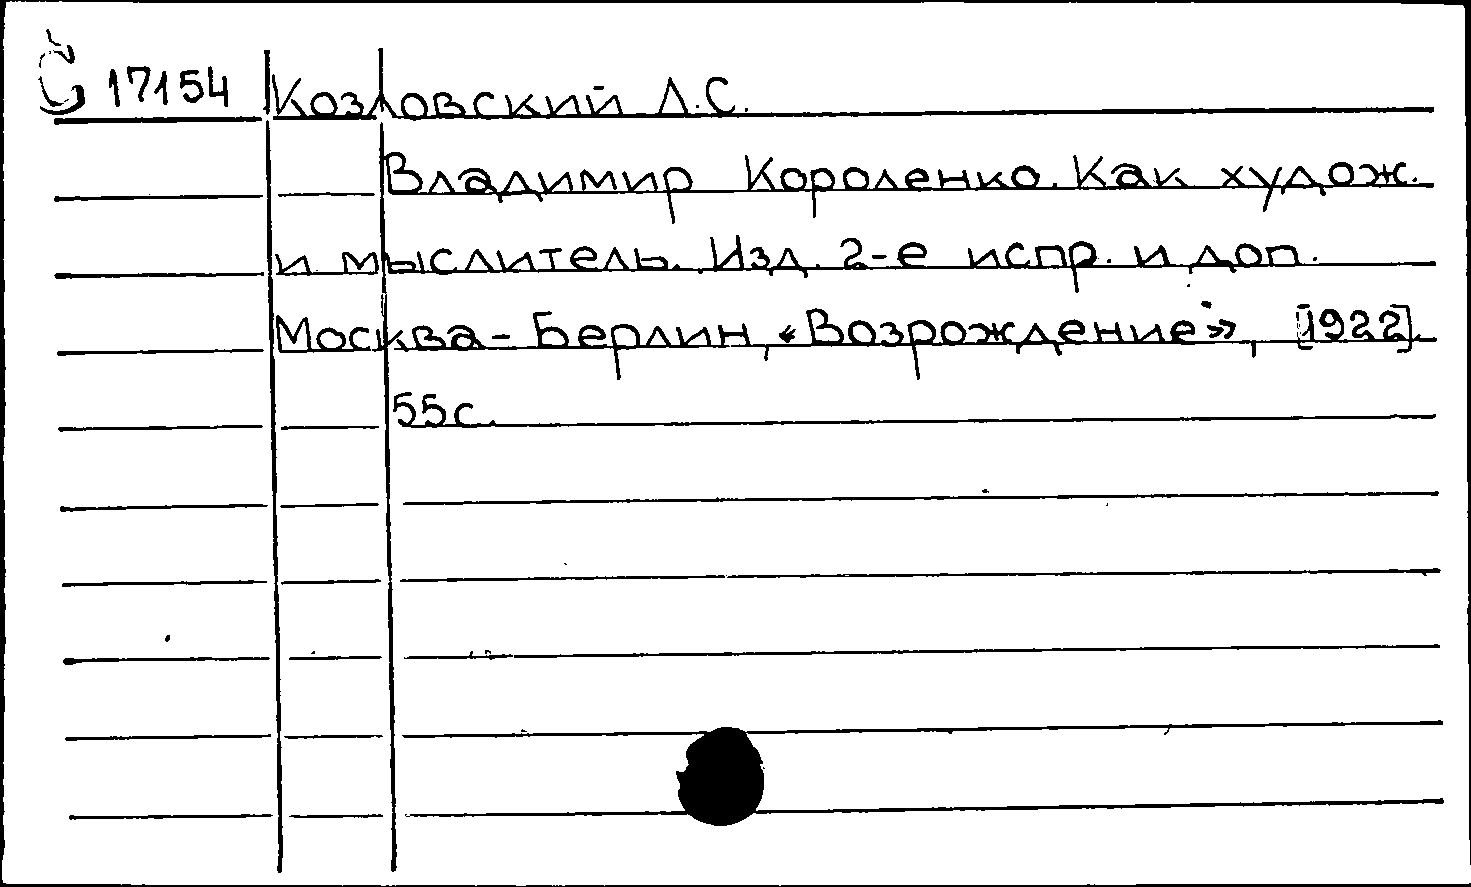 Č 17154 Козловский Л.С.
Владимир Короленко. Как худож.
и мыслитель. Изд. 2-е испр. и доп.
Москва-Берлин, «Возрождение», [1922].
55с.